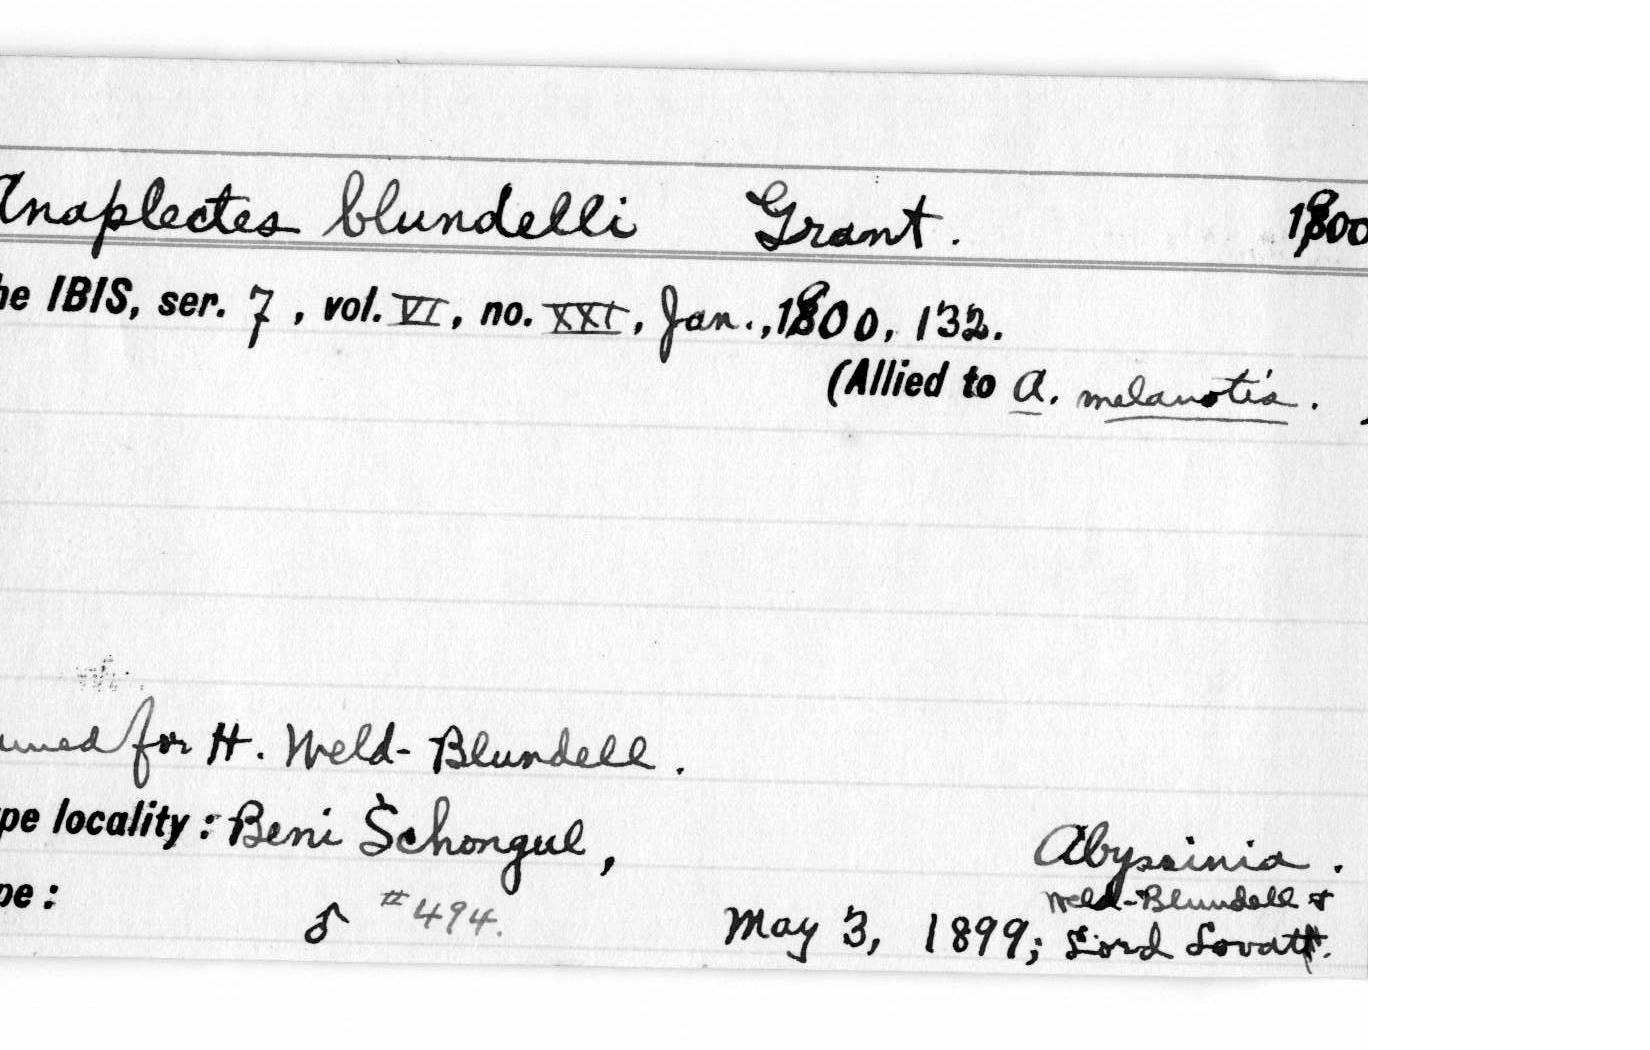 Anaplectes blundelli Grant. 1900
he IBIS, ser. 7, vol. VI, no. XXI, Jan., 1900, 132.
(Allied to A. melanotis.
umed for H. Weld-Blundell.
pe locality: Beni Schongul, Abyssinia.
pe: ♂ #494. May 3, 1899; Weld-Blundell &
Lord Lovat.